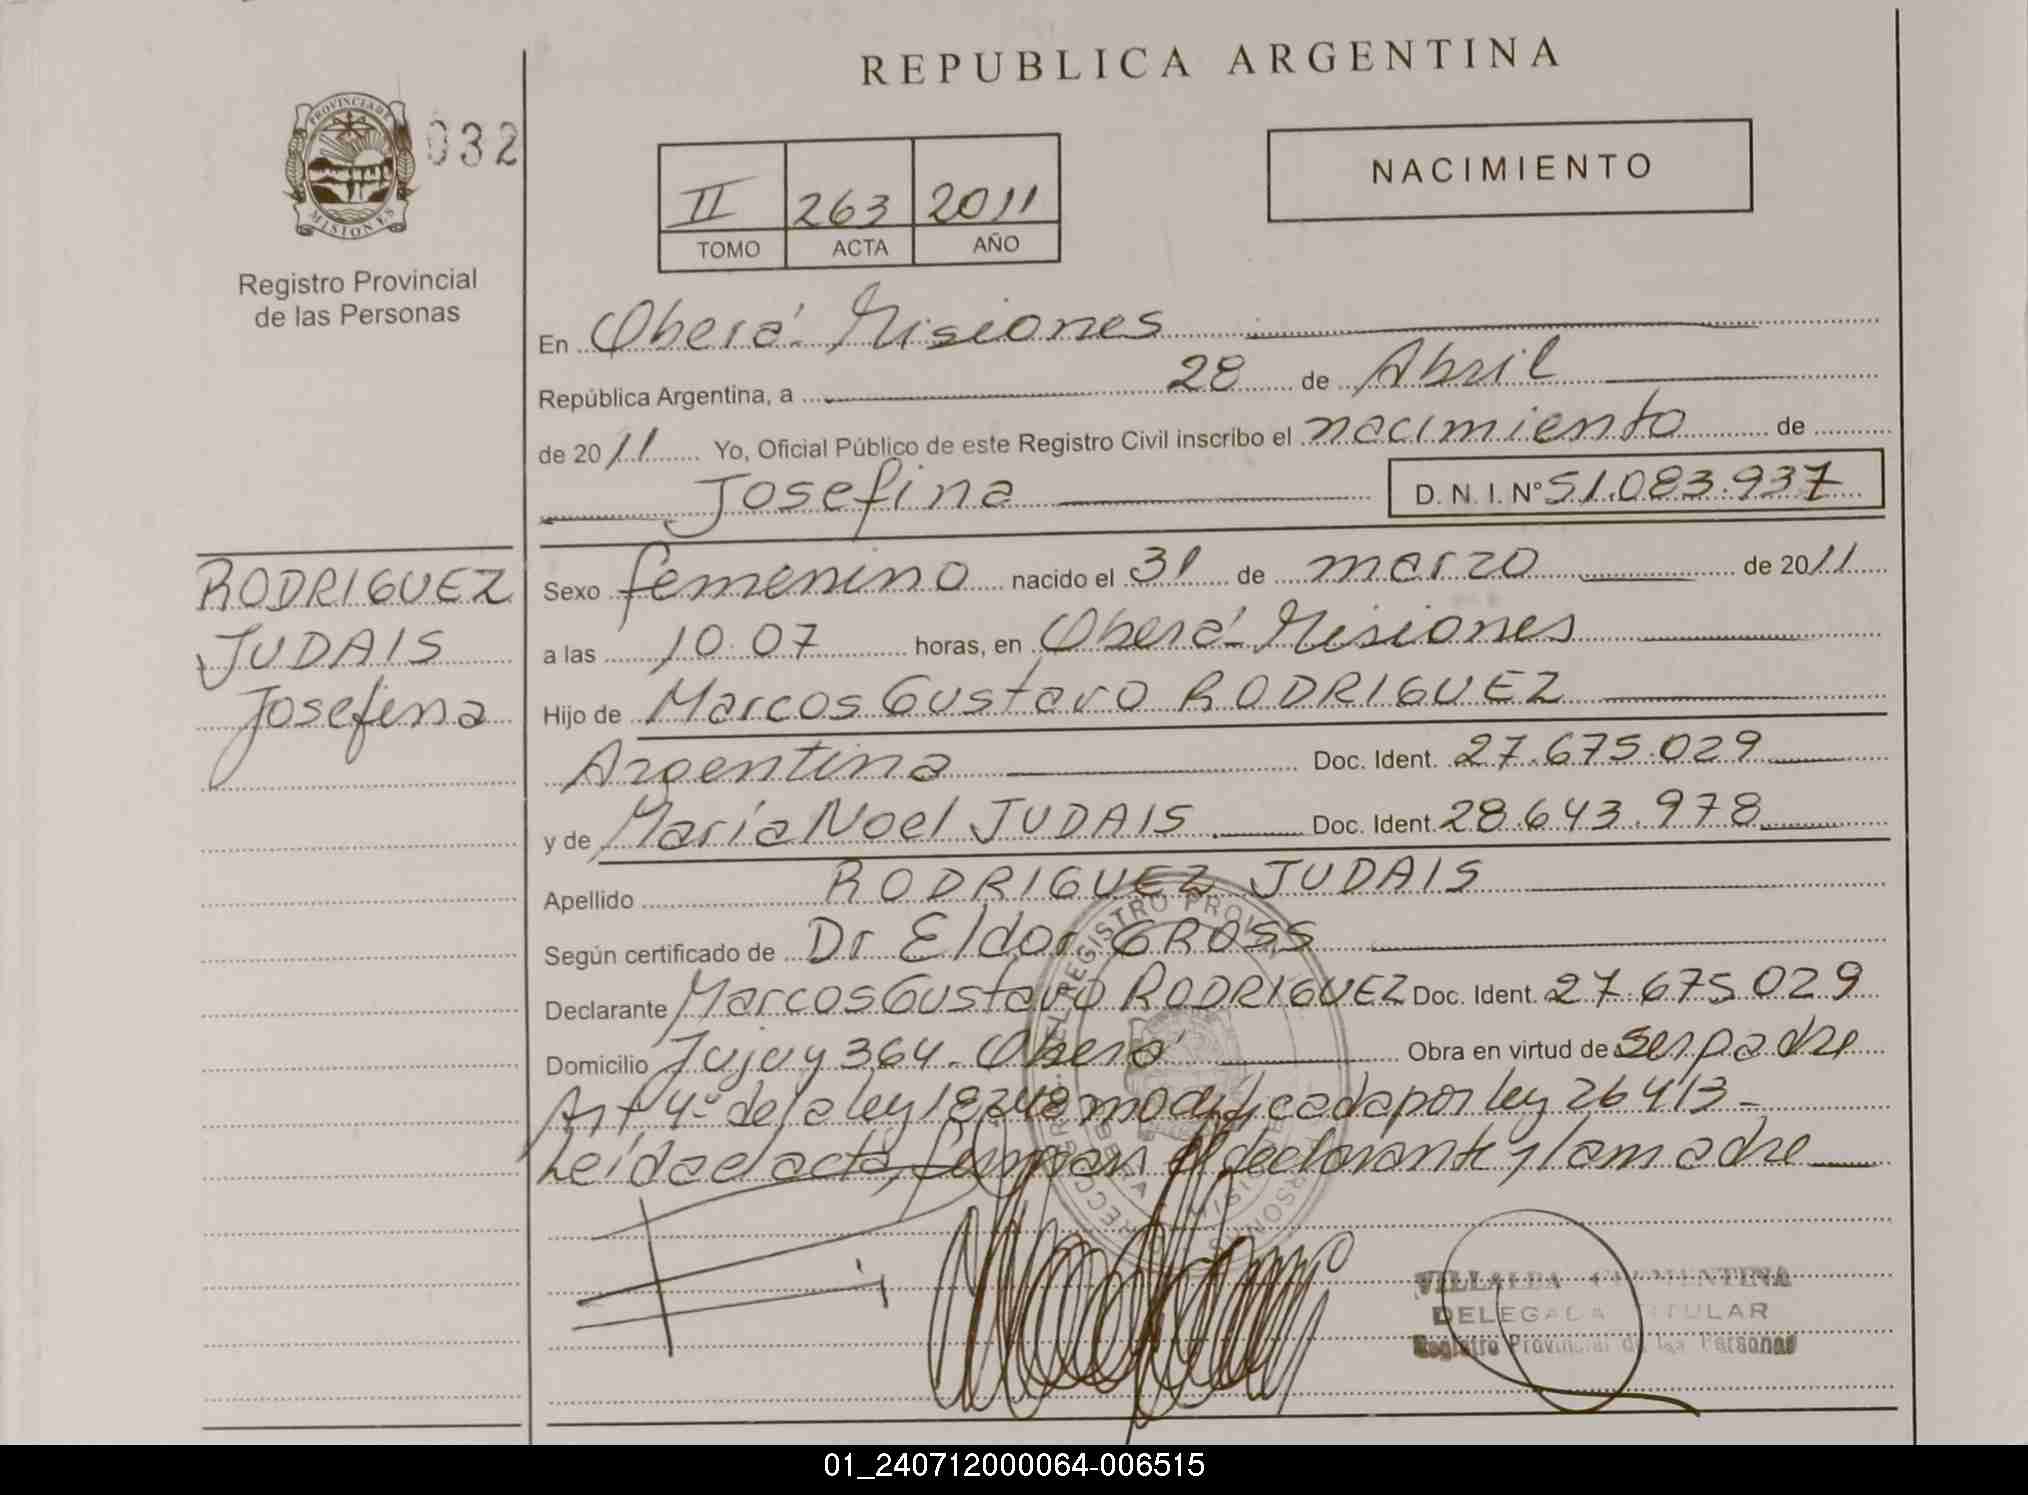 REPUBLICA ARGENTINA
PROVINCIA DE
MISIONES
032
Registro Provincial
de las Personas
II 263 2011
TOMO ACTA AÑO
NACIMIENTO
En Oberá - Misiones
República Argentina, a 28 de Abril
de 2011 Yo, Oficial Público de este Registro Civil inscribo el nacimiento de
Josefina D. N. I. Nº 51.083.937
RODRIGUEZ
JUDAIS
Josefina
Sexo femenino nacido el 31 de marzo de 2011
a las 10.07 horas, en Oberá - Misiones
Hijo de Marcos Gustavo RODRIGUEZ
Argentina Doc. Ident. 27.675.029
y de María Noel JUDAIS Doc. Ident 28.643.978
Apellido RODRIGUEZ JUDAIS
Según certificado de Dr Eldor GROSS
Declarante Marcos Gustavo RODRIGUEZ Doc. Ident. 27.675.029
Domicilio Jujuy 364 - Oberá Obra en virtud de ser padre
Art 4º de la ley 18248 modificada por ley 26413 -
Leída el acta, firman el declarante y la madre
VILLALBA CLEMENTINA
DELEGADA TITULAR
Registro Provincial de las Personas
01_240712000064-006515